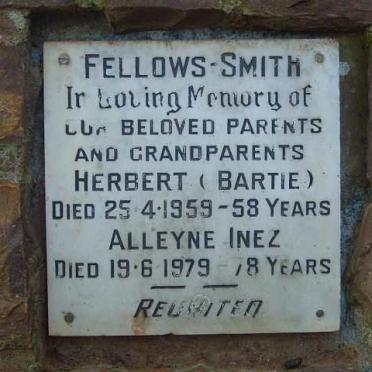 FELLOWS-SMITH
In Loving Memory of
OUR BELOVED PARENTS
AND GRANDPARENTS
HERBERT (BARTIE)
DIED 25·4·1959 - 58 YEARS
ALLEYNE INEZ
DIED 19·6·1979 - 78 YEARS
REUNITED